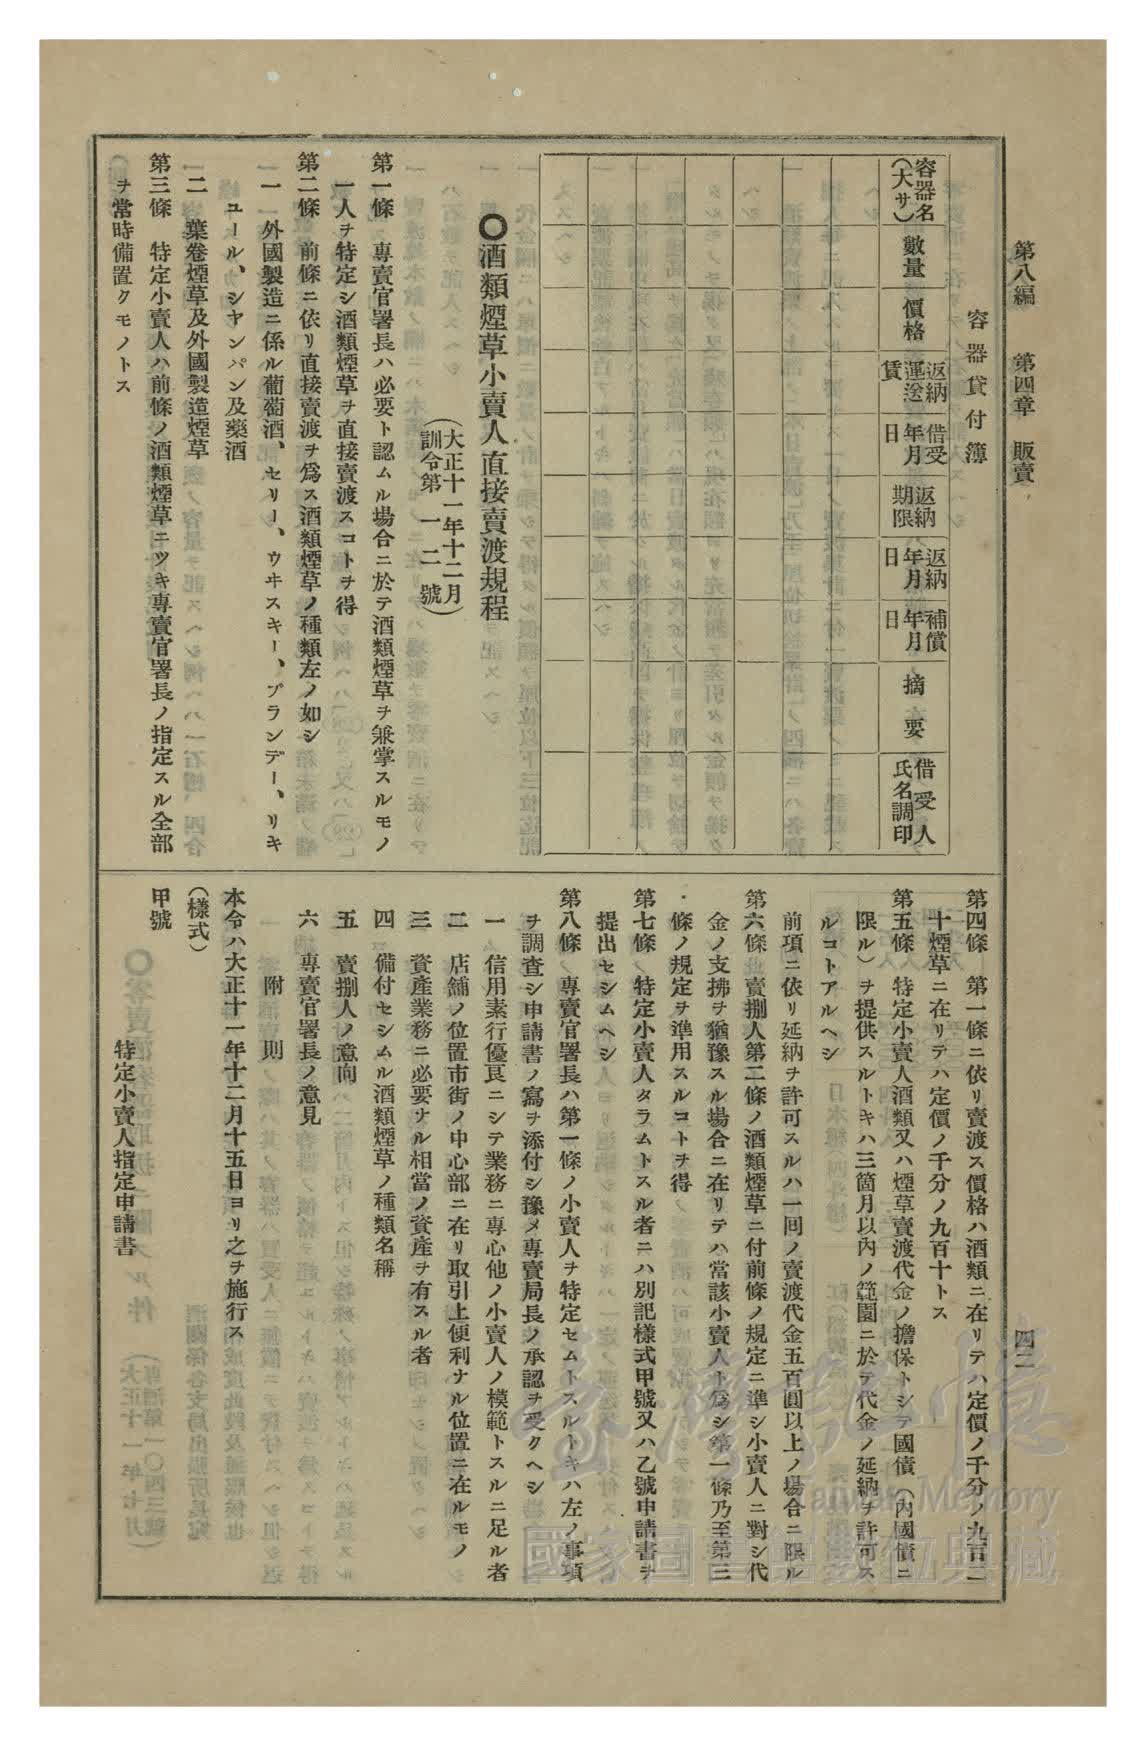 第八編　第四章　販賣
四二
容器貸付簿
容器名(大サ)
數量
價格
返納運送賃
借受年月日
返納期限
返納年月日
補償年月日
摘要
借受人氏名調印
〇酒類煙草小賣人直接賣渡規程
(大正十一年十二月
訓令第一二號)
第一條　專賣官署長ハ必要ト認ムル場合ニ於テ酒類煙草ヲ兼掌スルモノ
一人ヲ特定シ酒類煙草ヲ直接賣渡スコトヲ得
第二條　前條ニ依リ直接賣渡ヲ爲ス酒類煙草ノ種類左ノ如シ
一　外國製造ニ係ル葡萄酒、セリー、ウヰスキー、ブランデー、リキ
ユール、シヤンパン及藥酒
二　葉卷煙草及外國製造煙草
第三條　特定小賣人ハ前條ノ酒類煙草ニツキ專賣官署長ノ指定スル全部
ヲ當時備置クモノトス
第四條　第一條ニ依リ賣渡ス價格ハ酒類ニ在リテハ定價ノ千分ノ九百二
十煙草ニ在リテハ定價ノ千分ノ九百十トス
第五條　特定小賣人酒類又ハ煙草賣渡代金ノ擔保トシテ國債(內國債ニ
限ル)ヲ提供スルトキハ三箇月以內ノ範圍ニ於テ代金ノ延納ヲ許可ス
ルコトアルヘシ
前項ニ依リ延納ヲ許可スルハ一回ノ賣渡代金五百圓以上ノ場合ニ限ル
第六條　賣捌人第二條ノ酒類煙草ニ付前條ノ規定ニ準シ小賣人ニ對シ代
金ノ支拂ヲ猶豫スル場合ニ在リテハ當該小賣人ト爲シ第一條乃至第三
條ノ規定ヲ準用スルコトヲ得
第七條　特定小賣人タラムトスル者ニハ別記樣式甲號又ハ乙號申請書ヲ
提出セシムヘシ
第八條　專賣官署長ハ第一條ノ小賣人ヲ特定セムトスルトキハ左ノ事項
ヲ調査シ申請書ノ寫ヲ添付シ豫メ專賣局長ノ承認ヲ受クヘシ
一　信用素行優良ニシテ業務ニ專心他ノ小賣人ノ模範トスルニ足ル者
二　店舖ノ位置市街ノ中心部ニ在リ取引上便利ナル位置ニ在ルモノ
三　資產業務ニ必要ナル相當ノ資產ヲ有スル者
四　備付セシムル酒類煙草ノ種類名稱
五　賣捌人ノ意向
六　專賣官署長ノ意見
附則
本令ハ大正十一年十二月十五日ヨリ之ヲ施行ス
(樣式)
甲號
特定小賣人指定申請書
臺灣記憶
Taiwan Memory
國家圖書館數位典藏